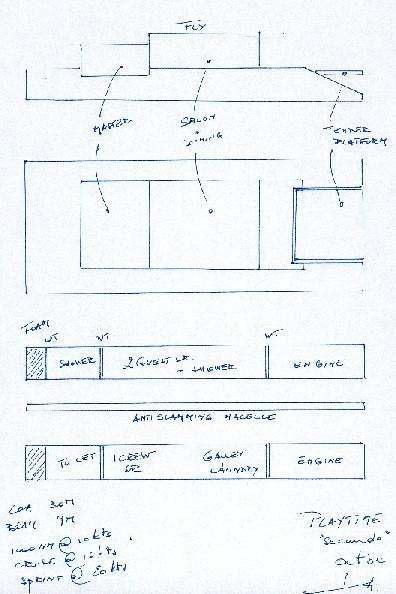 FLY
MASTER
SALON
DINING
TENDER
PLATFORM
FOAM
WT
WT
WT
SHOWER
2 GUEST
SHOWER
ENGINE
ANTISLAMMING NACELLE
TOILET
1 CREW
GALLEY
LAUNDRY
ENGINE
LOA 30M
BEAM 9M
@ 10 kts
CRUISE @ kts
SPRINT @ 20 kts
PLAYTIME
"Secundo"